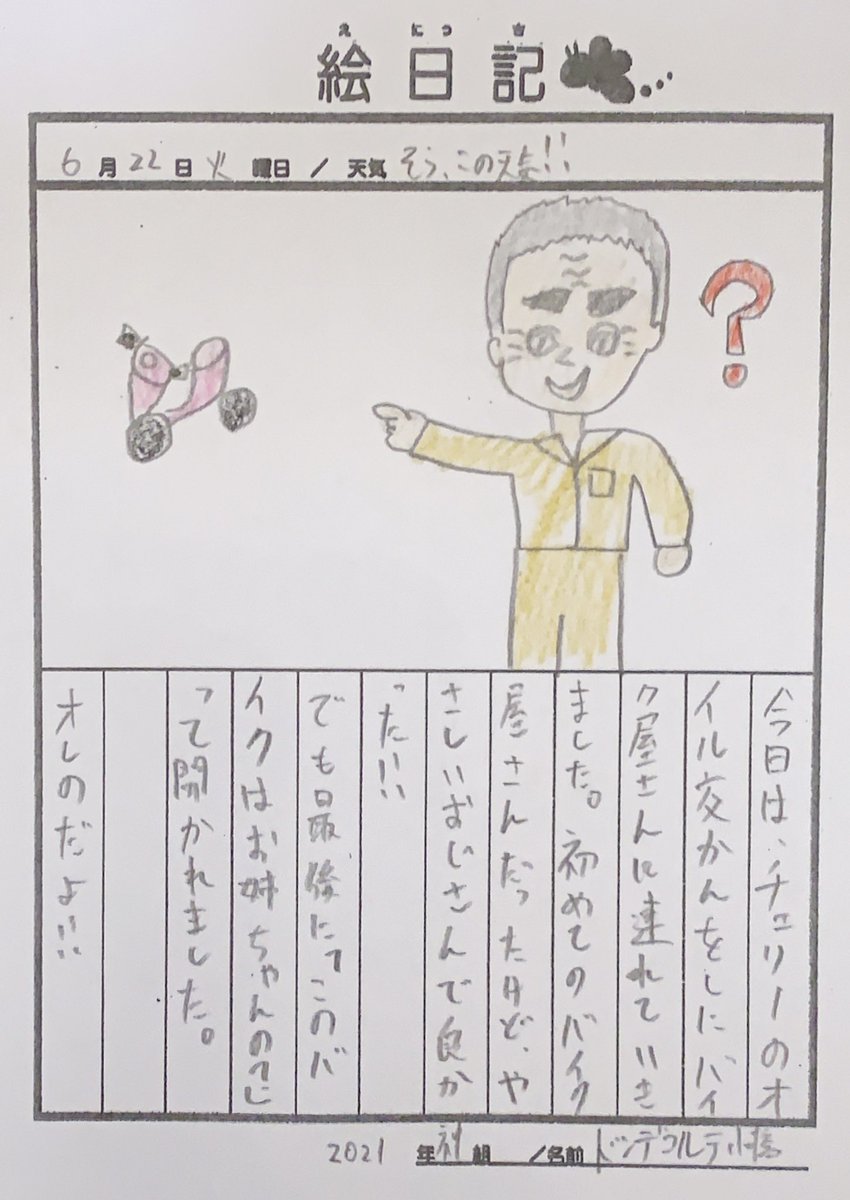 え にっ き
絵日記
6月22日 火曜日 / 天気 そう、この天気!!
?
今日は、チェリーのオ
イル交かんをしにバイ
ク屋さんに連れていき
ました。初めてのバイク
屋さんだったけど、や
さしいおじさんで良か
った!!
でも最後に「このバ
イクはお姉ちゃんの?」
って聞かれました。
オレのだよ!!
2021 年 組 /名前 ドンデコルテ小橋